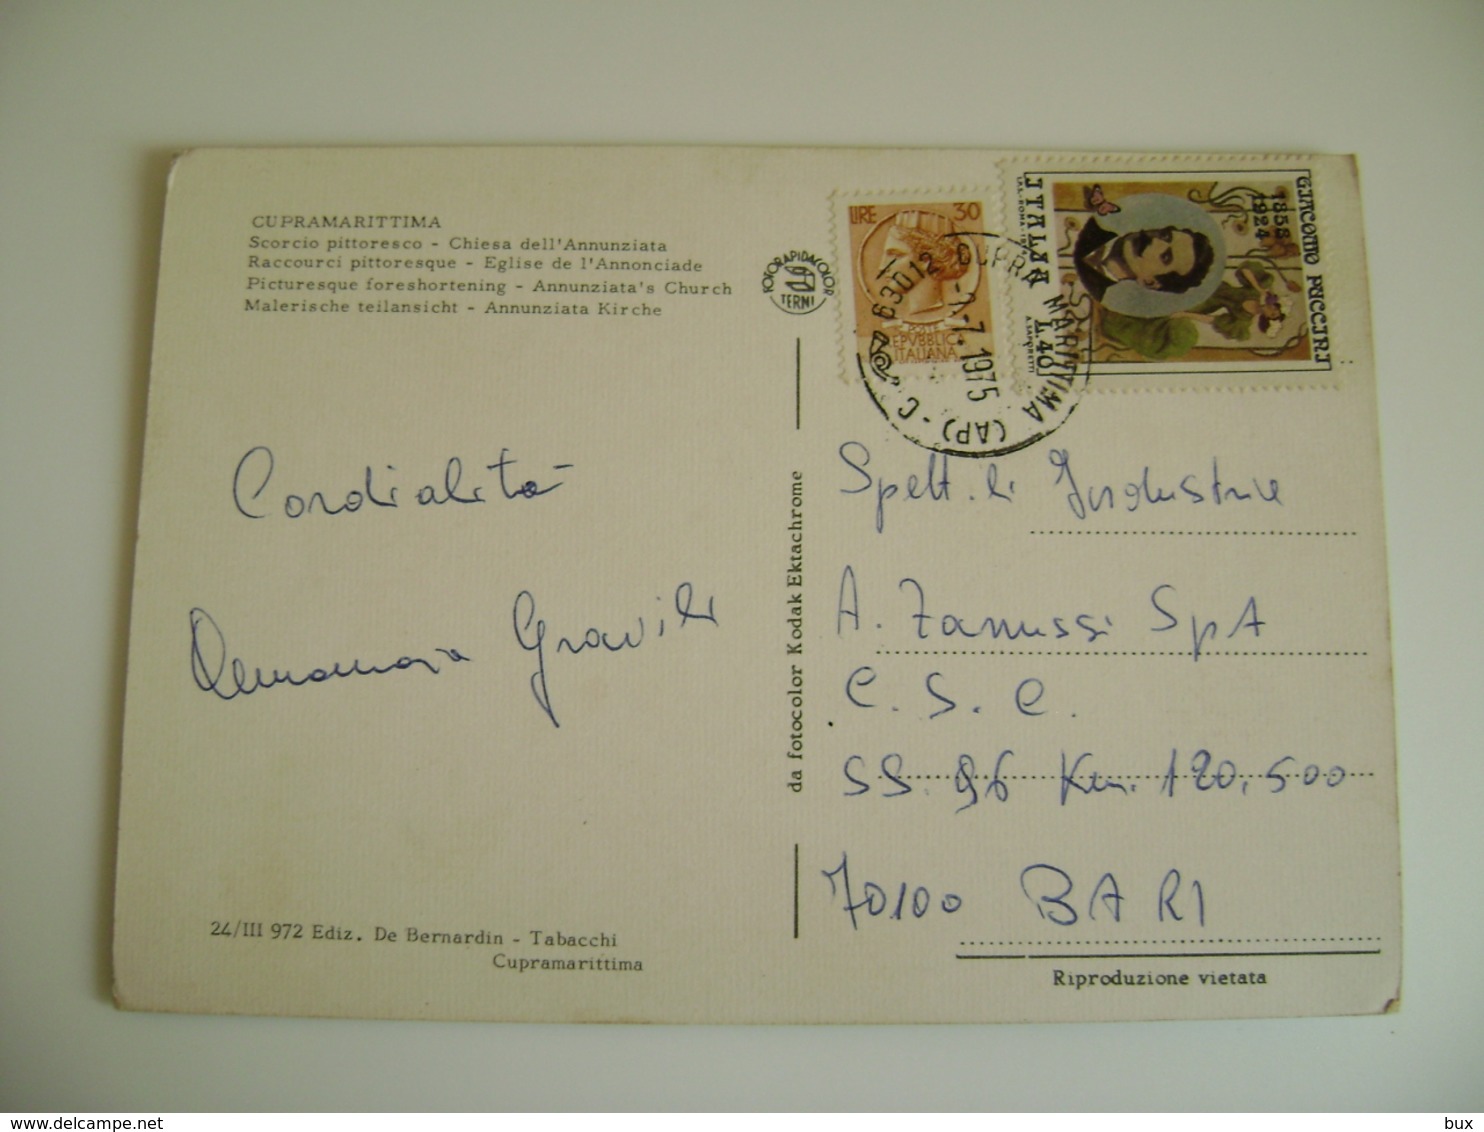 CUPRAMARITTIMA
Scorcio pittoresco - Chiesa dell'Annunziata
Raccourci pittoresque - Eglise de l'Annonciade
Picturesque foreshortening - Annunziata's Church
Malerische teilansicht - Annunziata Kirche
FOTORAPIDACOLOR
TERNI
LIRE 30
POSTE
REPVBBLICA
ITALIANA
GIACOMO PUCCINI
1858
1924
ITALIA L.40
A. SAPORETTI
63012 CUPRA MARITTIMA (AP) - C
-7-7.1975
Cordialità
Gravili
da fotocolor Kodak Ektachrome
Spett.li Industrie
A. Zanussi SpA
C.S.C.
SS. 96 Km. 120,500
70100 BARI
24/III 972 Ediz. De Bernardin - Tabacchi
Cupramarittima
Riproduzione vietata
bux